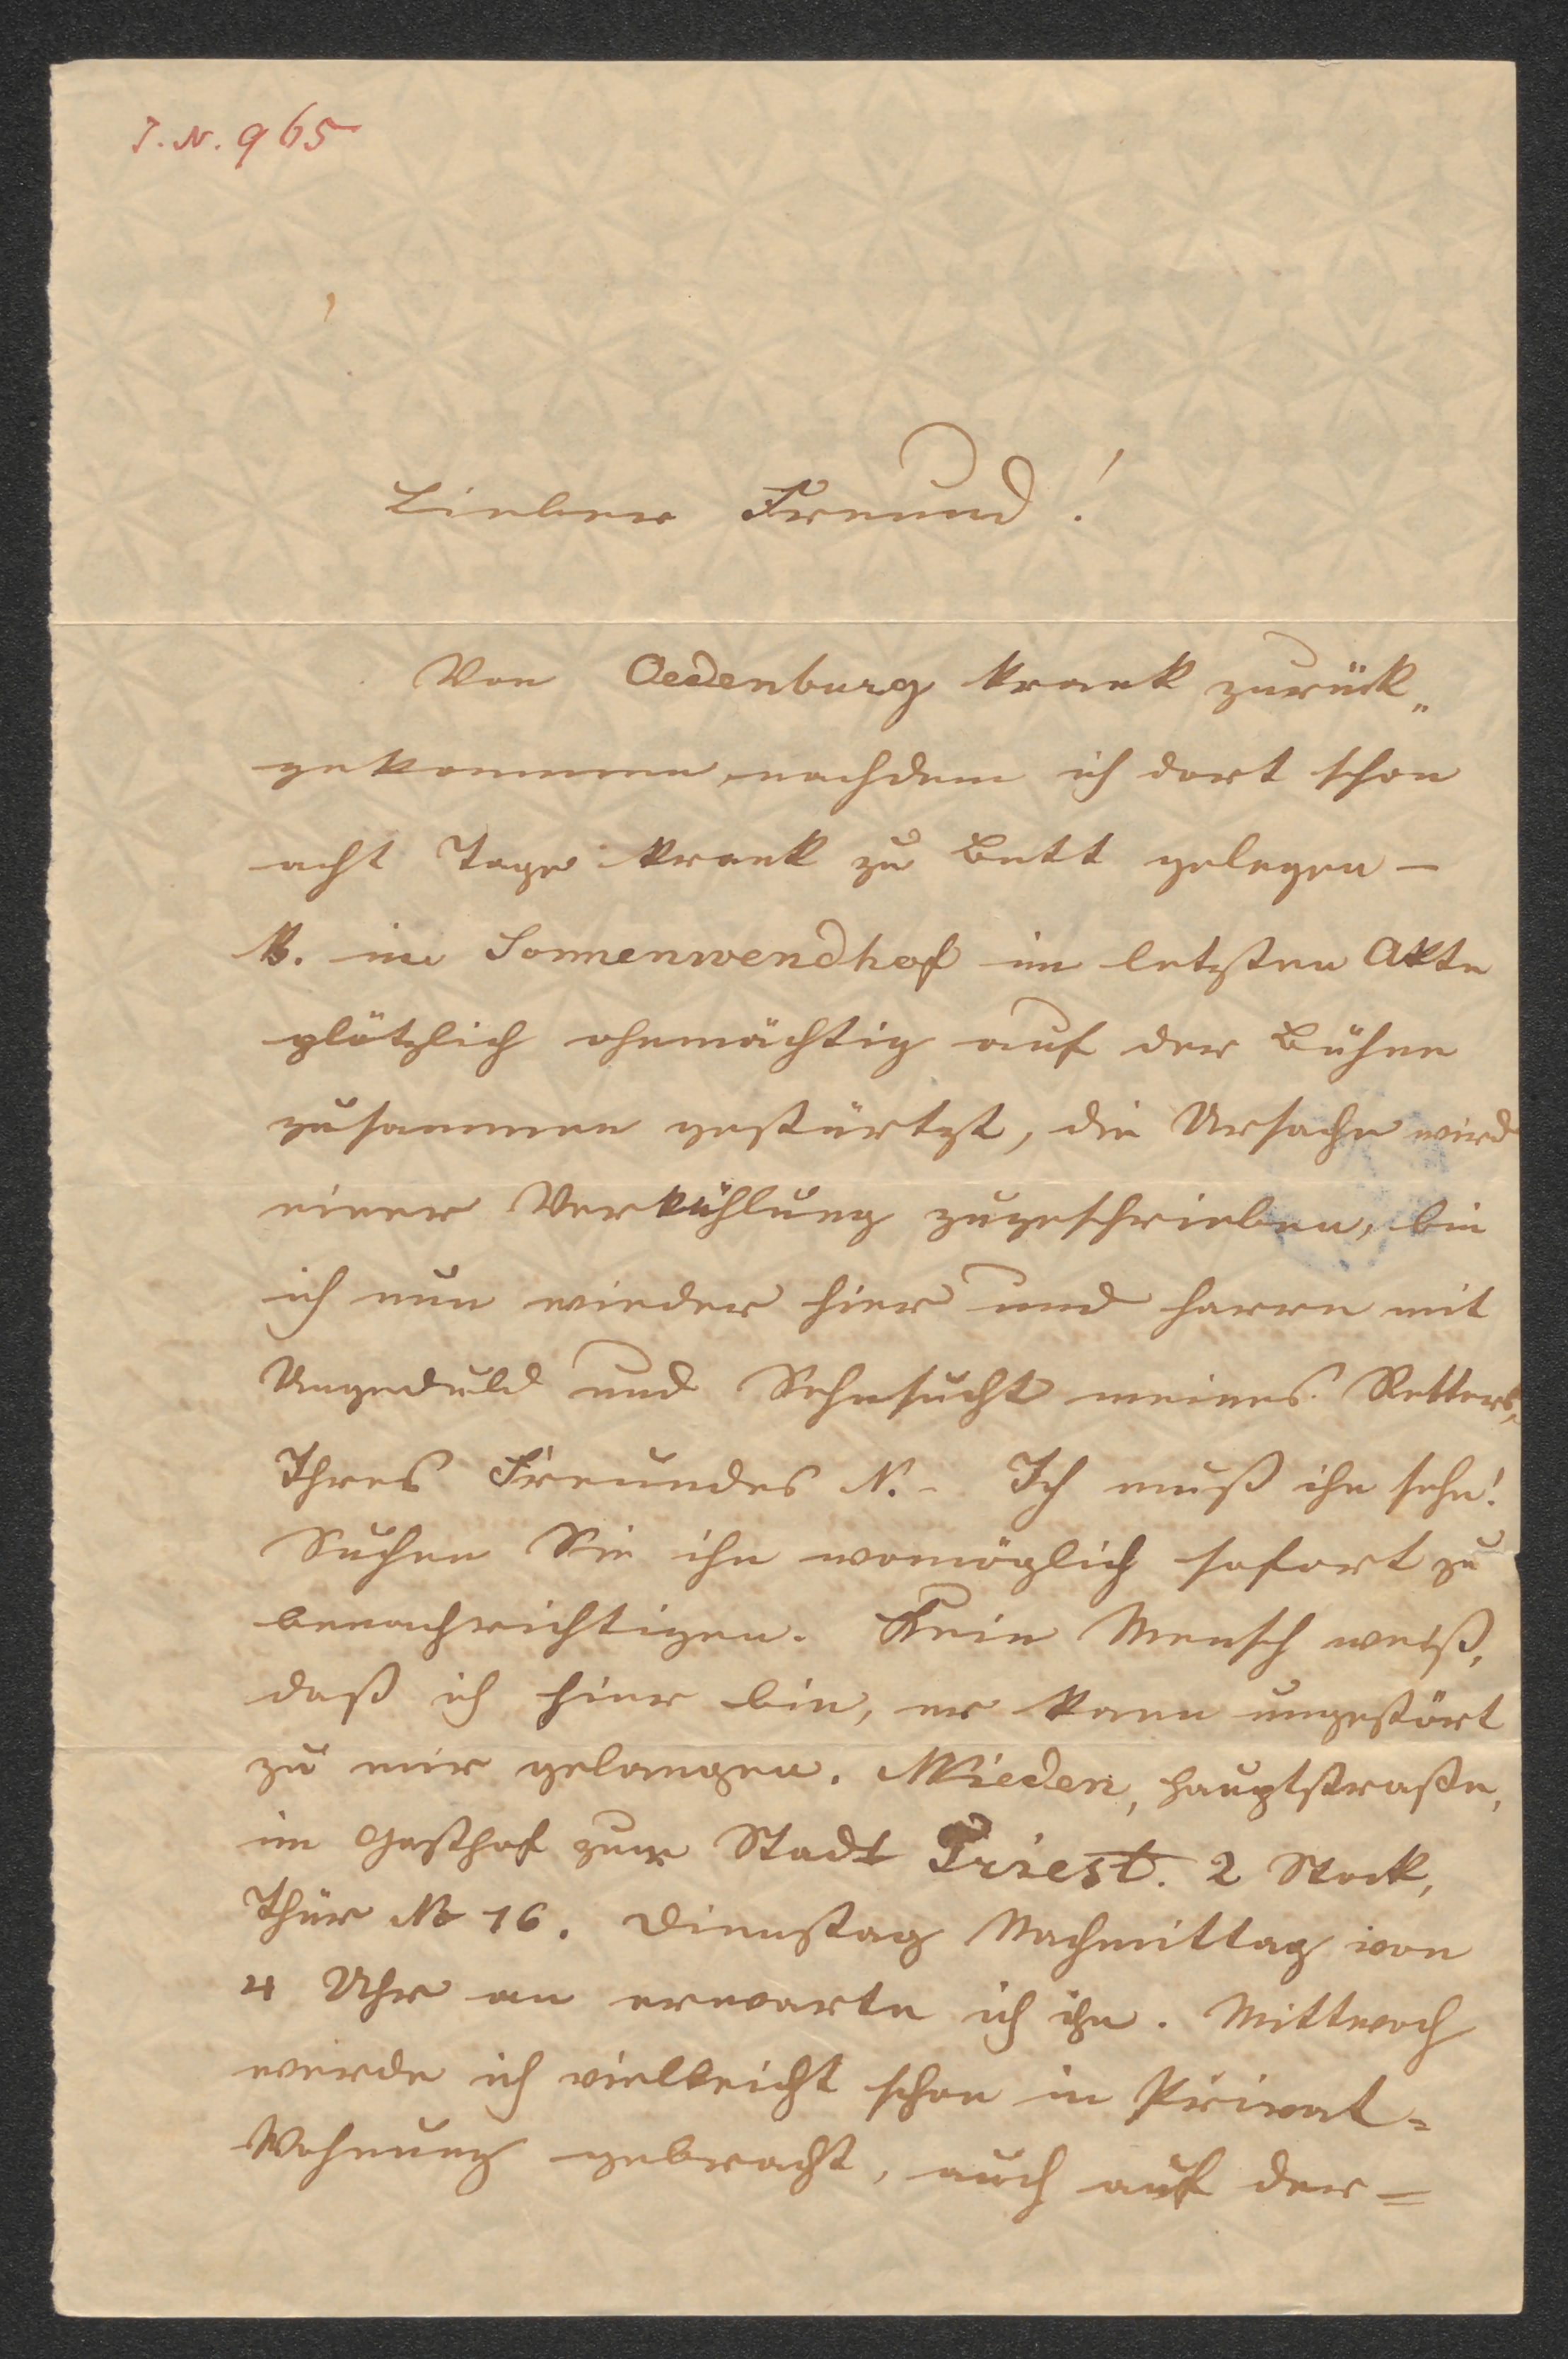 I. N. 965
Lieber Freund!
Von Oedenburg krank zurück„
gekommen, nachdem ich dort schon
acht Tage krank zu Bett gelegen –
im Sonnenwendhof im letzten Akte
plötzlich ohnmächtig auf der Bühne
zusammen gestürtzt, die Ursache wird
einer Verkühlung zugeschrieben, bin
ich nun wieder hier und harre mit
Ungeduld und Sehnsucht meines Retters,
Ihres Freundes N. – Ich muß ihn sehn!
Suchen Sie ihn womöglich sofort zu
benachrichtigen. Kein Mensch weiß,
daß ich hier bin, er kann ungestört
zu mir gelangen. Wieden, Hauptstraße,
im Gasthof zur Stadt Triest. 2 Stock,
Thür No 16. Dienstag Nachmittag von
4 Uhr an erwarte ich ihn. Mittwoch
werde ich vielleicht schon in Privat=
Wohnung gebracht, auch auf der=